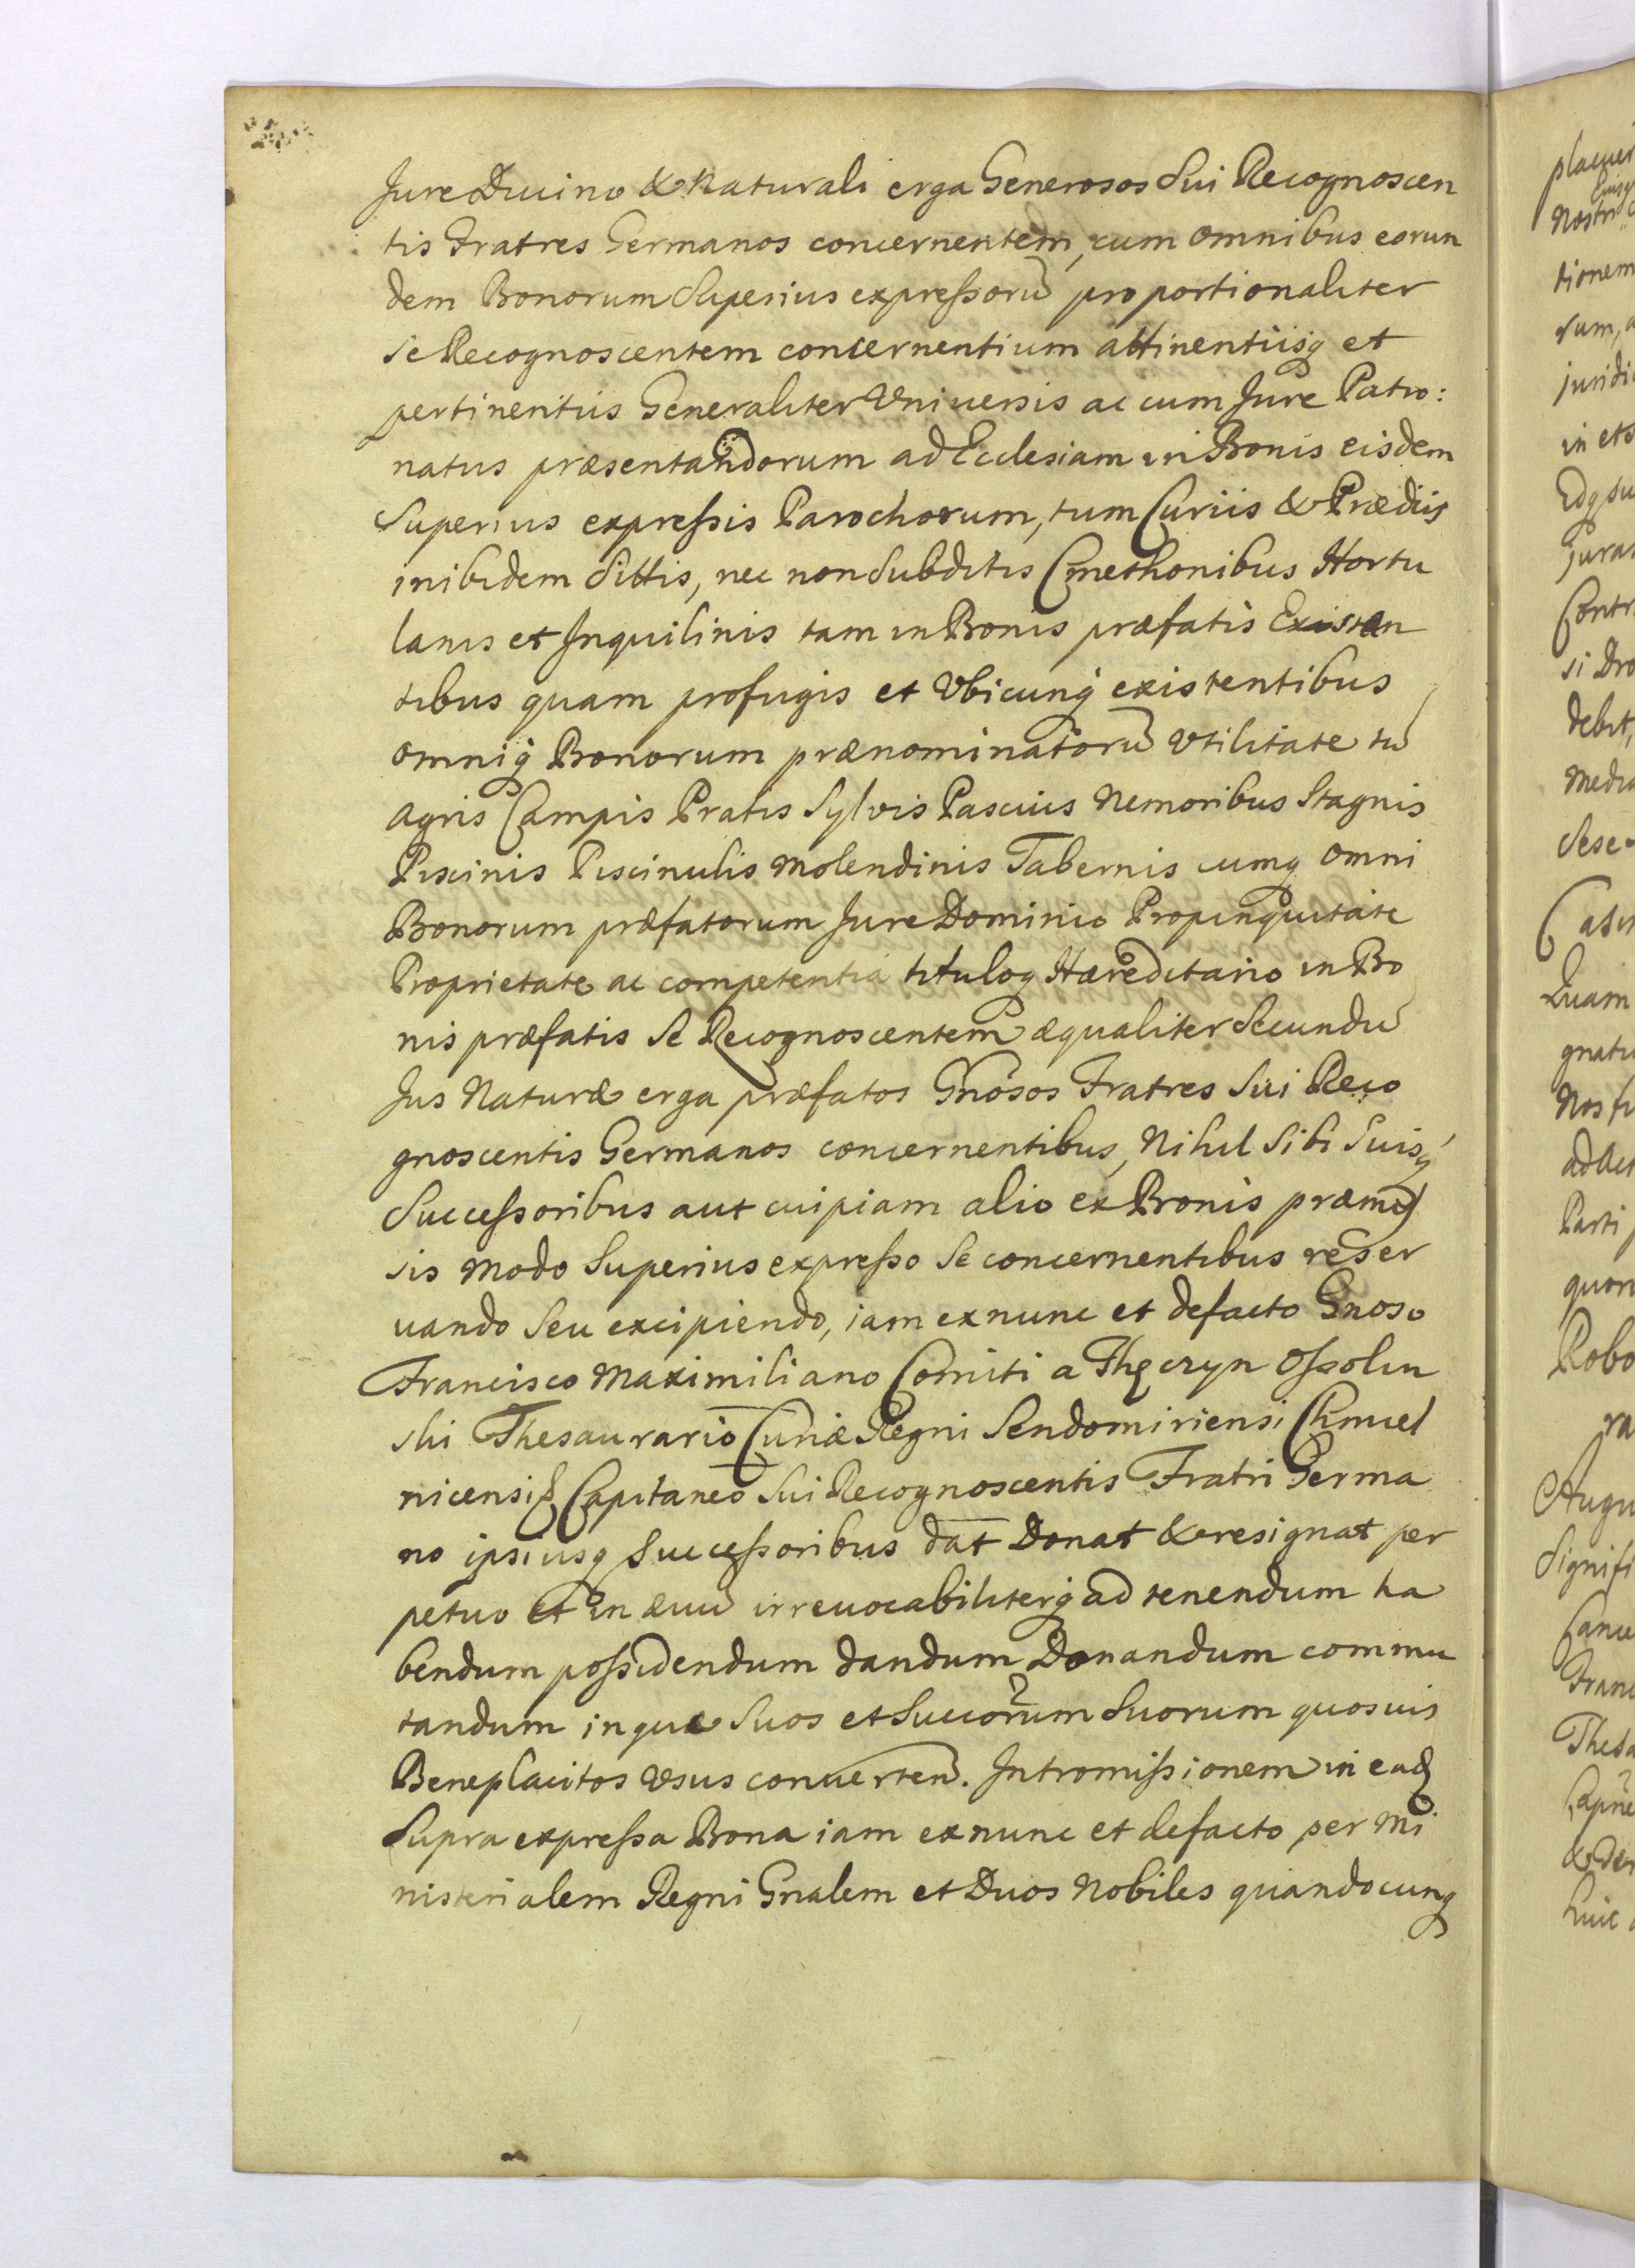 Jure Diuino & Naturali erga Generosos Sui Recognoscen
tis Fratres Germanos concernentem, cum omnibus eorun
dem Bonorum Superius expressorũ proportionaliter
se Recognoscentem concernentium attinentiisq et
pertinentiis Generaliter Vniuersis ac cum Jure Patro:
natus præsentandorum ad Ecclesiam in Bonis eisdem
Superius expressis Parochorum, tum Curiis & Prædiis
inibidem Sittis, nec non Subditis Cmethonibus Hortu
lanis et Inquilinis tam in Bonis præfatis Existen
tibus quam profugis et Vbicunq existentibus
omniq Bonorum prænominatorũ Vtilitate tũ
Agris Campis Pratis Sylvis Pascuis Nemoribus Stagnis
Piscinis Piscinulis Molendinis Tabernis cumq omni
Bonorum præfatorum Jure Dominio Propinquitate
Proprietate ac competentia tituloq Hæreditario in Bo
nis præfatis Se Recognoscentem æqualiter Secundũ
Jus Naturæ erga præfatos Gnosos Fratres Sui Reco
gnoscentis Germanos concernentibus, Nihil Sibi Suisq
Successoribus aut cuipiam alio ex Bonis præmis
sis Modo Superius expresso Se concernentibus reser
uando Seu excipiendo, iam ex nunc et defacto Gnoso
Francisco Maximiliano Comiti a Thęczyn Ossolin
ski Thesaurario Curiæ Regni Sendomiriensi Chmiel
nicensiq Capitaneo Sui Recognoscentis Fratri Germa
no ipsiusq Successoribus dat Donat & resignat per
petuo et in æuũ irreuocabiliterq ad tenendum ha
bendum possidendum dandum Donandum commu
tandum inque Suos et Succorum Suorum quosuis
Beneplacitos Vsus conuerten. Intromissionem in eaq
Supra expressa Bona iam ex nunc et defacto per Mi
nisterialem Regni Gnalem et Duos Nobiles quandocunq